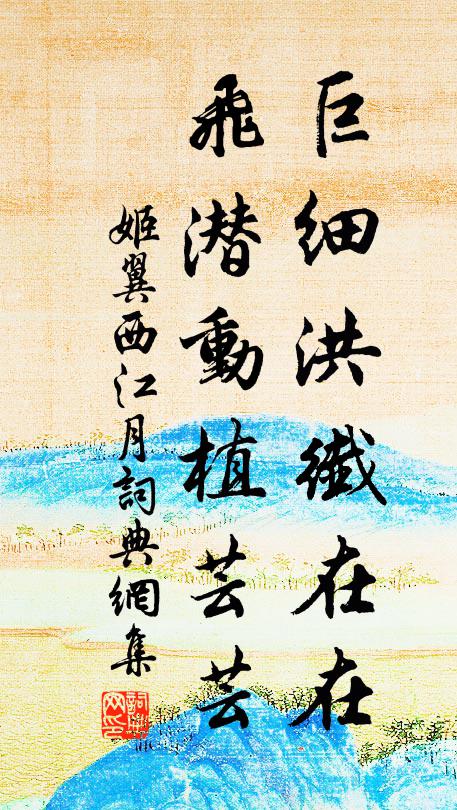 巨细洪纖在在
飛潜動植芸芸
姬翼西江月詞典網集